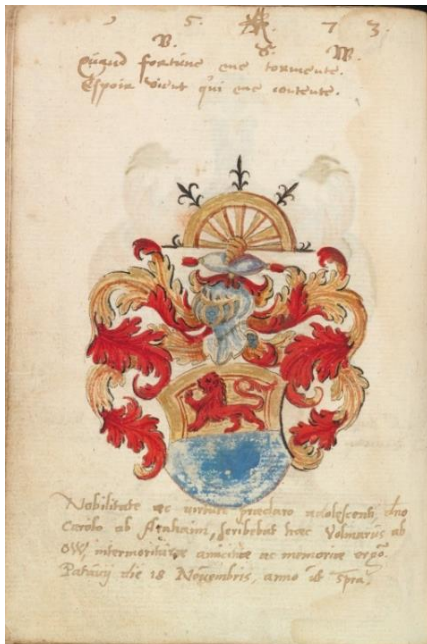 1 5 7 3.
B. S. M.
Quand fortune me tormente.
Espoir vient qui me contente.
Nobilitate ac virtute praeclaro adolescenti, dno
Carolo ab scribebat haec Volmarus ab
OW, intermoriturae amicitiae ac memoriae ergo.
Patavij die 18 Novembris, anno ut supra.